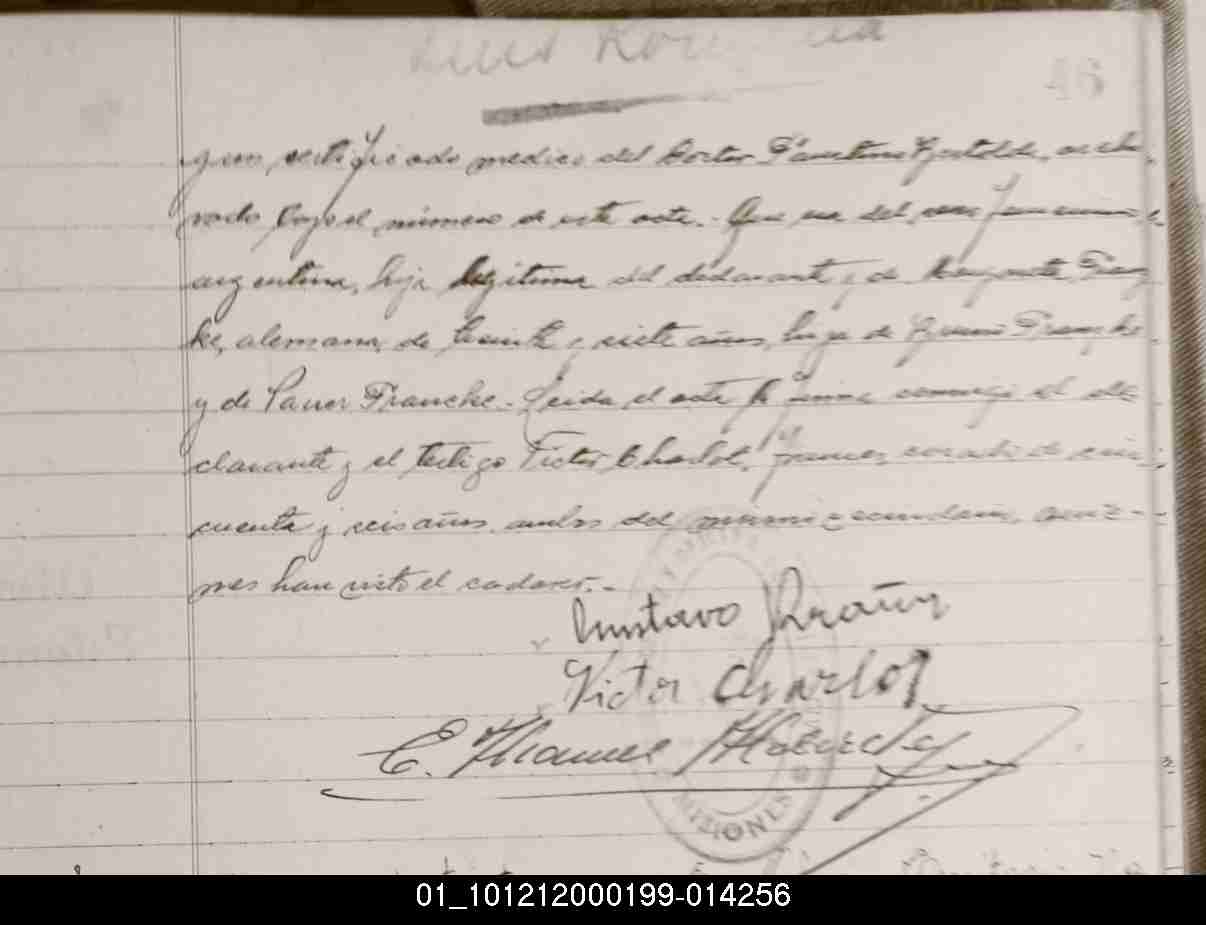 Luis
46
y un certificado medico del Doctor Faustino archi
vado bajo el número de este acta. Que era del sexo femenino
argentina, hija legitima del declarante y de Margarita Fran
ke, alemana, de treinta y siete años, hija de Franzke
y de Franche. Leida el acta la firma conmigo el de
clarante y el testigo Victor Charlot, frances, casado de cin
cuenta y seis años, ambos del mismo quie-
nes han visto el cadaver.-
Gustavo
Victor Charlot
E. Manuel
MISIONES
01_101212000199-014256